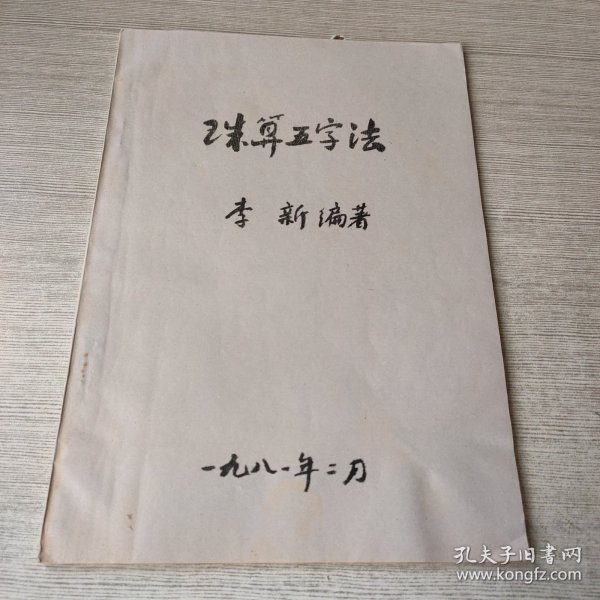 珠算五字法
李 新 编著
一九八一年二月
孔夫子旧书网
www.kongfz.com